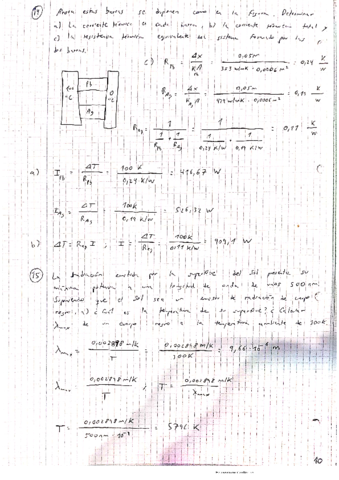 19 Ahora estas barras se disponen como en la figura. Determinar
a) la corriente térmica en cada barra, b) la corriente térmica total,
c) la resistencia térmica equivalente del sistema formado por las
dos barras.
c) R_Pb = Δx / K_Pb A = 0,05 m / = 0,24 K/W
100 °C Pb 0 °C
Ag
R_Ag = Δx / K_Ag A = 0,05 m / = 0,19 K/W
R_eq = 1 / (1/R_Pb + 1/R_Ag) = 1 / (1/0,24 K/W + 1/0,19 K/W) = 0,11 K/W
a) I_Pb = ΔT / R_Pb = 100 K / 0,24 K/W = 416,67 W
I_Ag = ΔT / R_Ag = 100 K / 0,19 K/W = 526,32 W
b) ΔT = R_eq I ; I = ΔT / R_eq = 100 K / 0,11 K/W = 909,1 W
La radiación emitida por la superficie del sol presenta su
máxima potencia a una longitud de onda de unos 500 nm.
Suponiendo que el sol sea un emisor de radiación de cuerpo
negro, ¿Cuál es la temperatura de su superficie? Calcular
λmax de un cuerpo negro a la temperatura ambiente de 300 K.
λmax = 0,002898 mK / T = 0,002898 mK / 300 K = 9,66·10⁻⁶ m
λmax = 0,002898 mK / T ; T = 0,002898 mK / λmax
T = 0,002898 mK / 500 nm · 10⁻⁹ = 5796 K
10